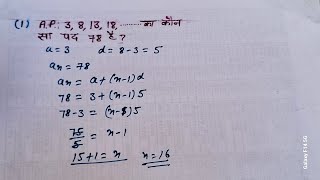 (1) A.P: 3, 8, 13, 18, ........ का कौन
सा पद 78 है ?
a = 3 d = 8-3 = 5
an = 78
an = a+(n-1)d
78 = 3+(n-1)5
78-3 = (n-1)5
75/5 = n-1
15+1 = n n=16
Galaxy F14 5G